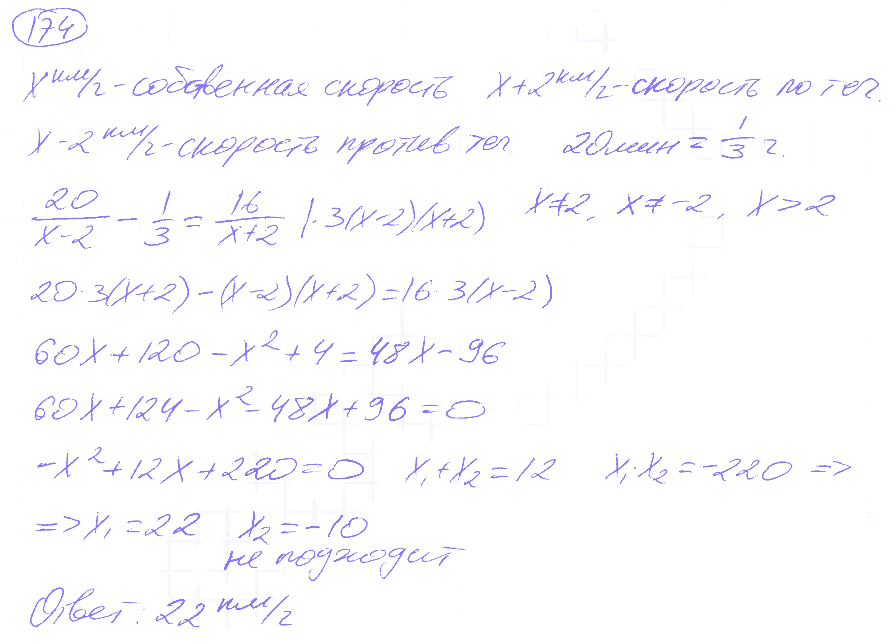 174
x км/г - собственная скорость x+2 км/г - скорость по теч.
x-2 км/г - скорость против теч 20 мин = 1/3 г.
20/(x-2) - 1/3 = 16/(x+2) |·3(x-2)(x+2) x≠2, x≠-2, x>2
20·3(x+2)-(x-2)(x+2)=16·3(x-2)
60x+120-x²+4=48x-96
60x+124-x²-48x+96=0
-x²+12x+220=0 x₁+x₂=12 x₁·x₂=-220 =>
=> x₁=22 x₂=-10
не подходит
Ответ: 22 км/г